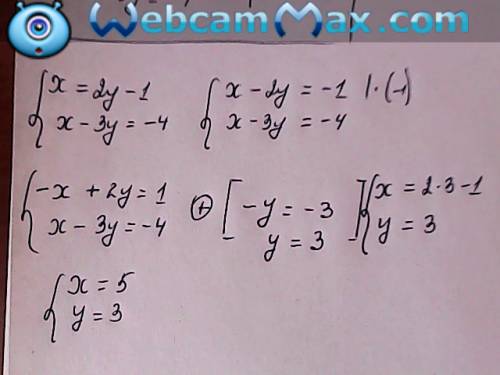 WebcamMax.com
{ x = 2y - 1
x - 3y = -4
{ x - 2y = -1 | · (-1)
x - 3y = -4
{ -x + 2y = 1
x - 3y = -4
⊕ [ -y = -3
y = 3 ]
{ x = 2·3 - 1
y = 3
{ x = 5
y = 3